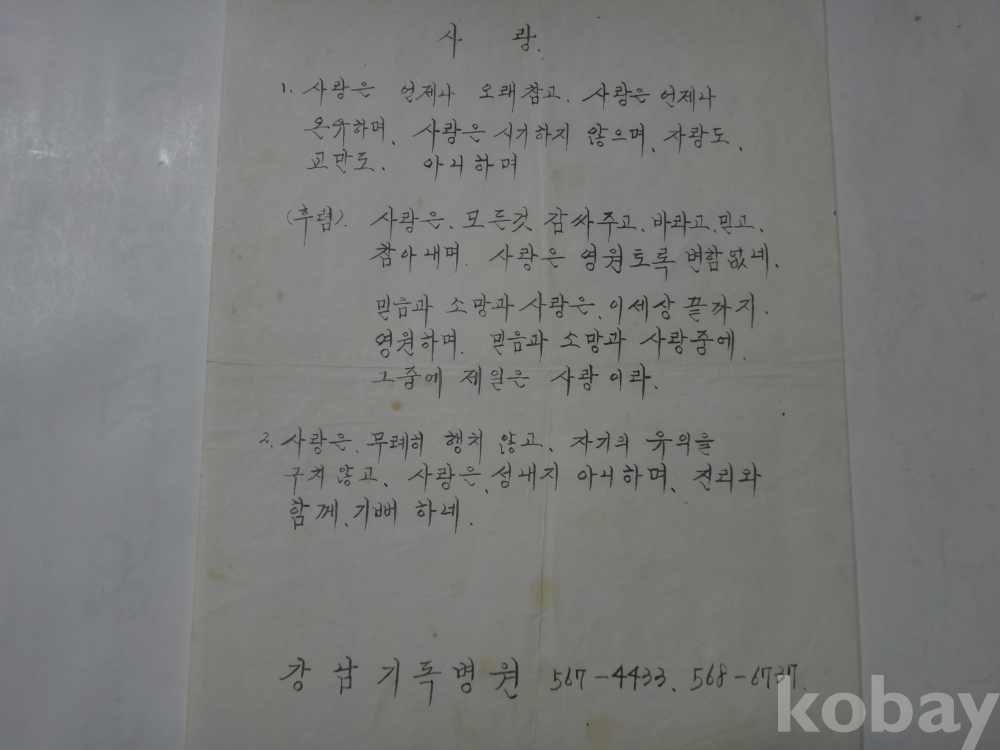 사 랑.
1. 사랑은 언제나 오래참고. 사랑은 언제나
온유하며, 사랑은 시기하지 않으며, 자랑도,
교만도, 아니하며
(후렴). 사랑은, 모든것 감싸주고, 바라고, 믿고,
참아내며 사랑은 영원토록 변함없네,
믿음과 소망과 사랑은, 이세상 끝까지.
영원하며 믿음과 소망과 사랑중에
그중에 제일은 사랑이라.
2. 사랑은, 무례히 행치 않고, 자기의 유익을
구치않고, 사랑은, 성내지 아니하며, 진리와
함께, 기뻐 하네.
강남기독병원 567-4433, 568-6737.
kobay